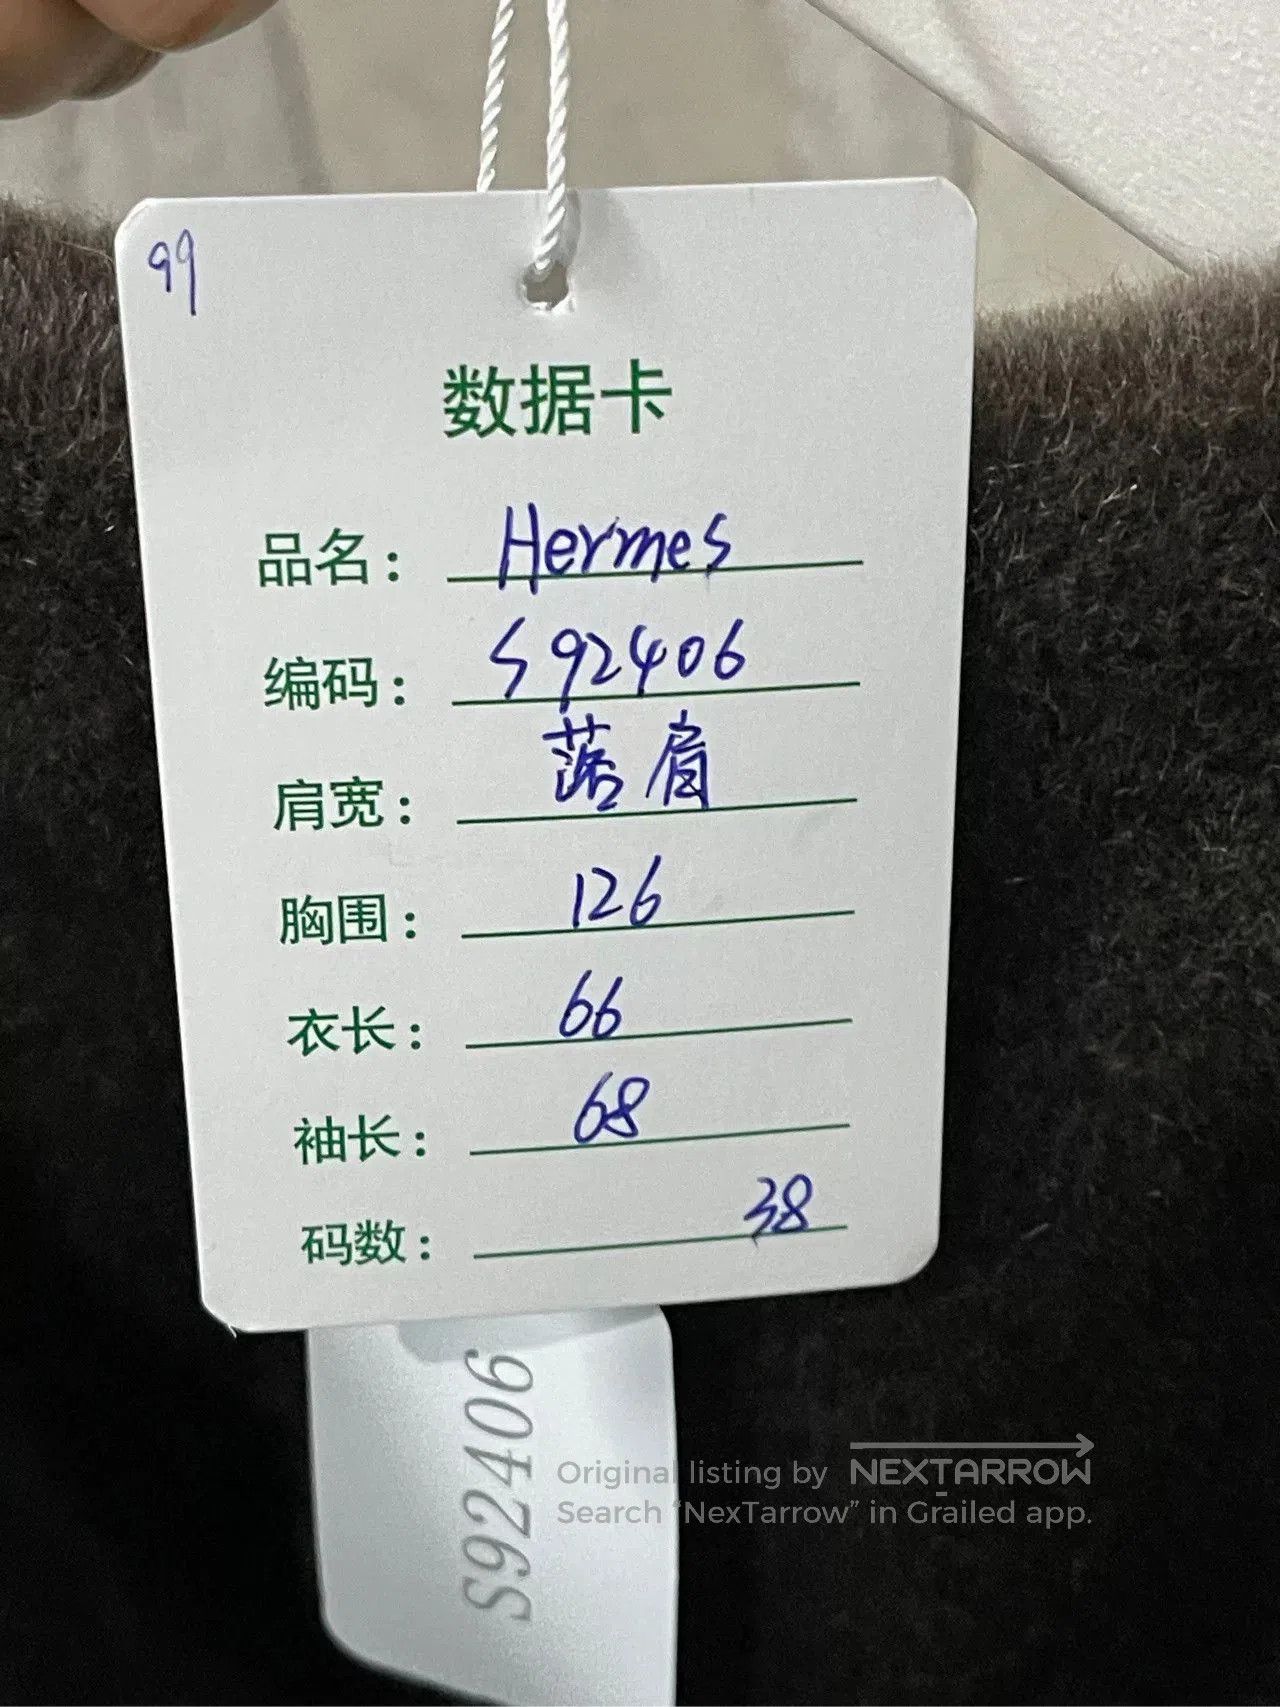 99
数据卡
品名: Hermes
编码: S92406
肩宽: 落肩
胸围: 126
衣长: 66
袖长: 68
码数: 38
S92406
Original listing by NEXTARROW
Search “NexTarrow” in Grailed app.